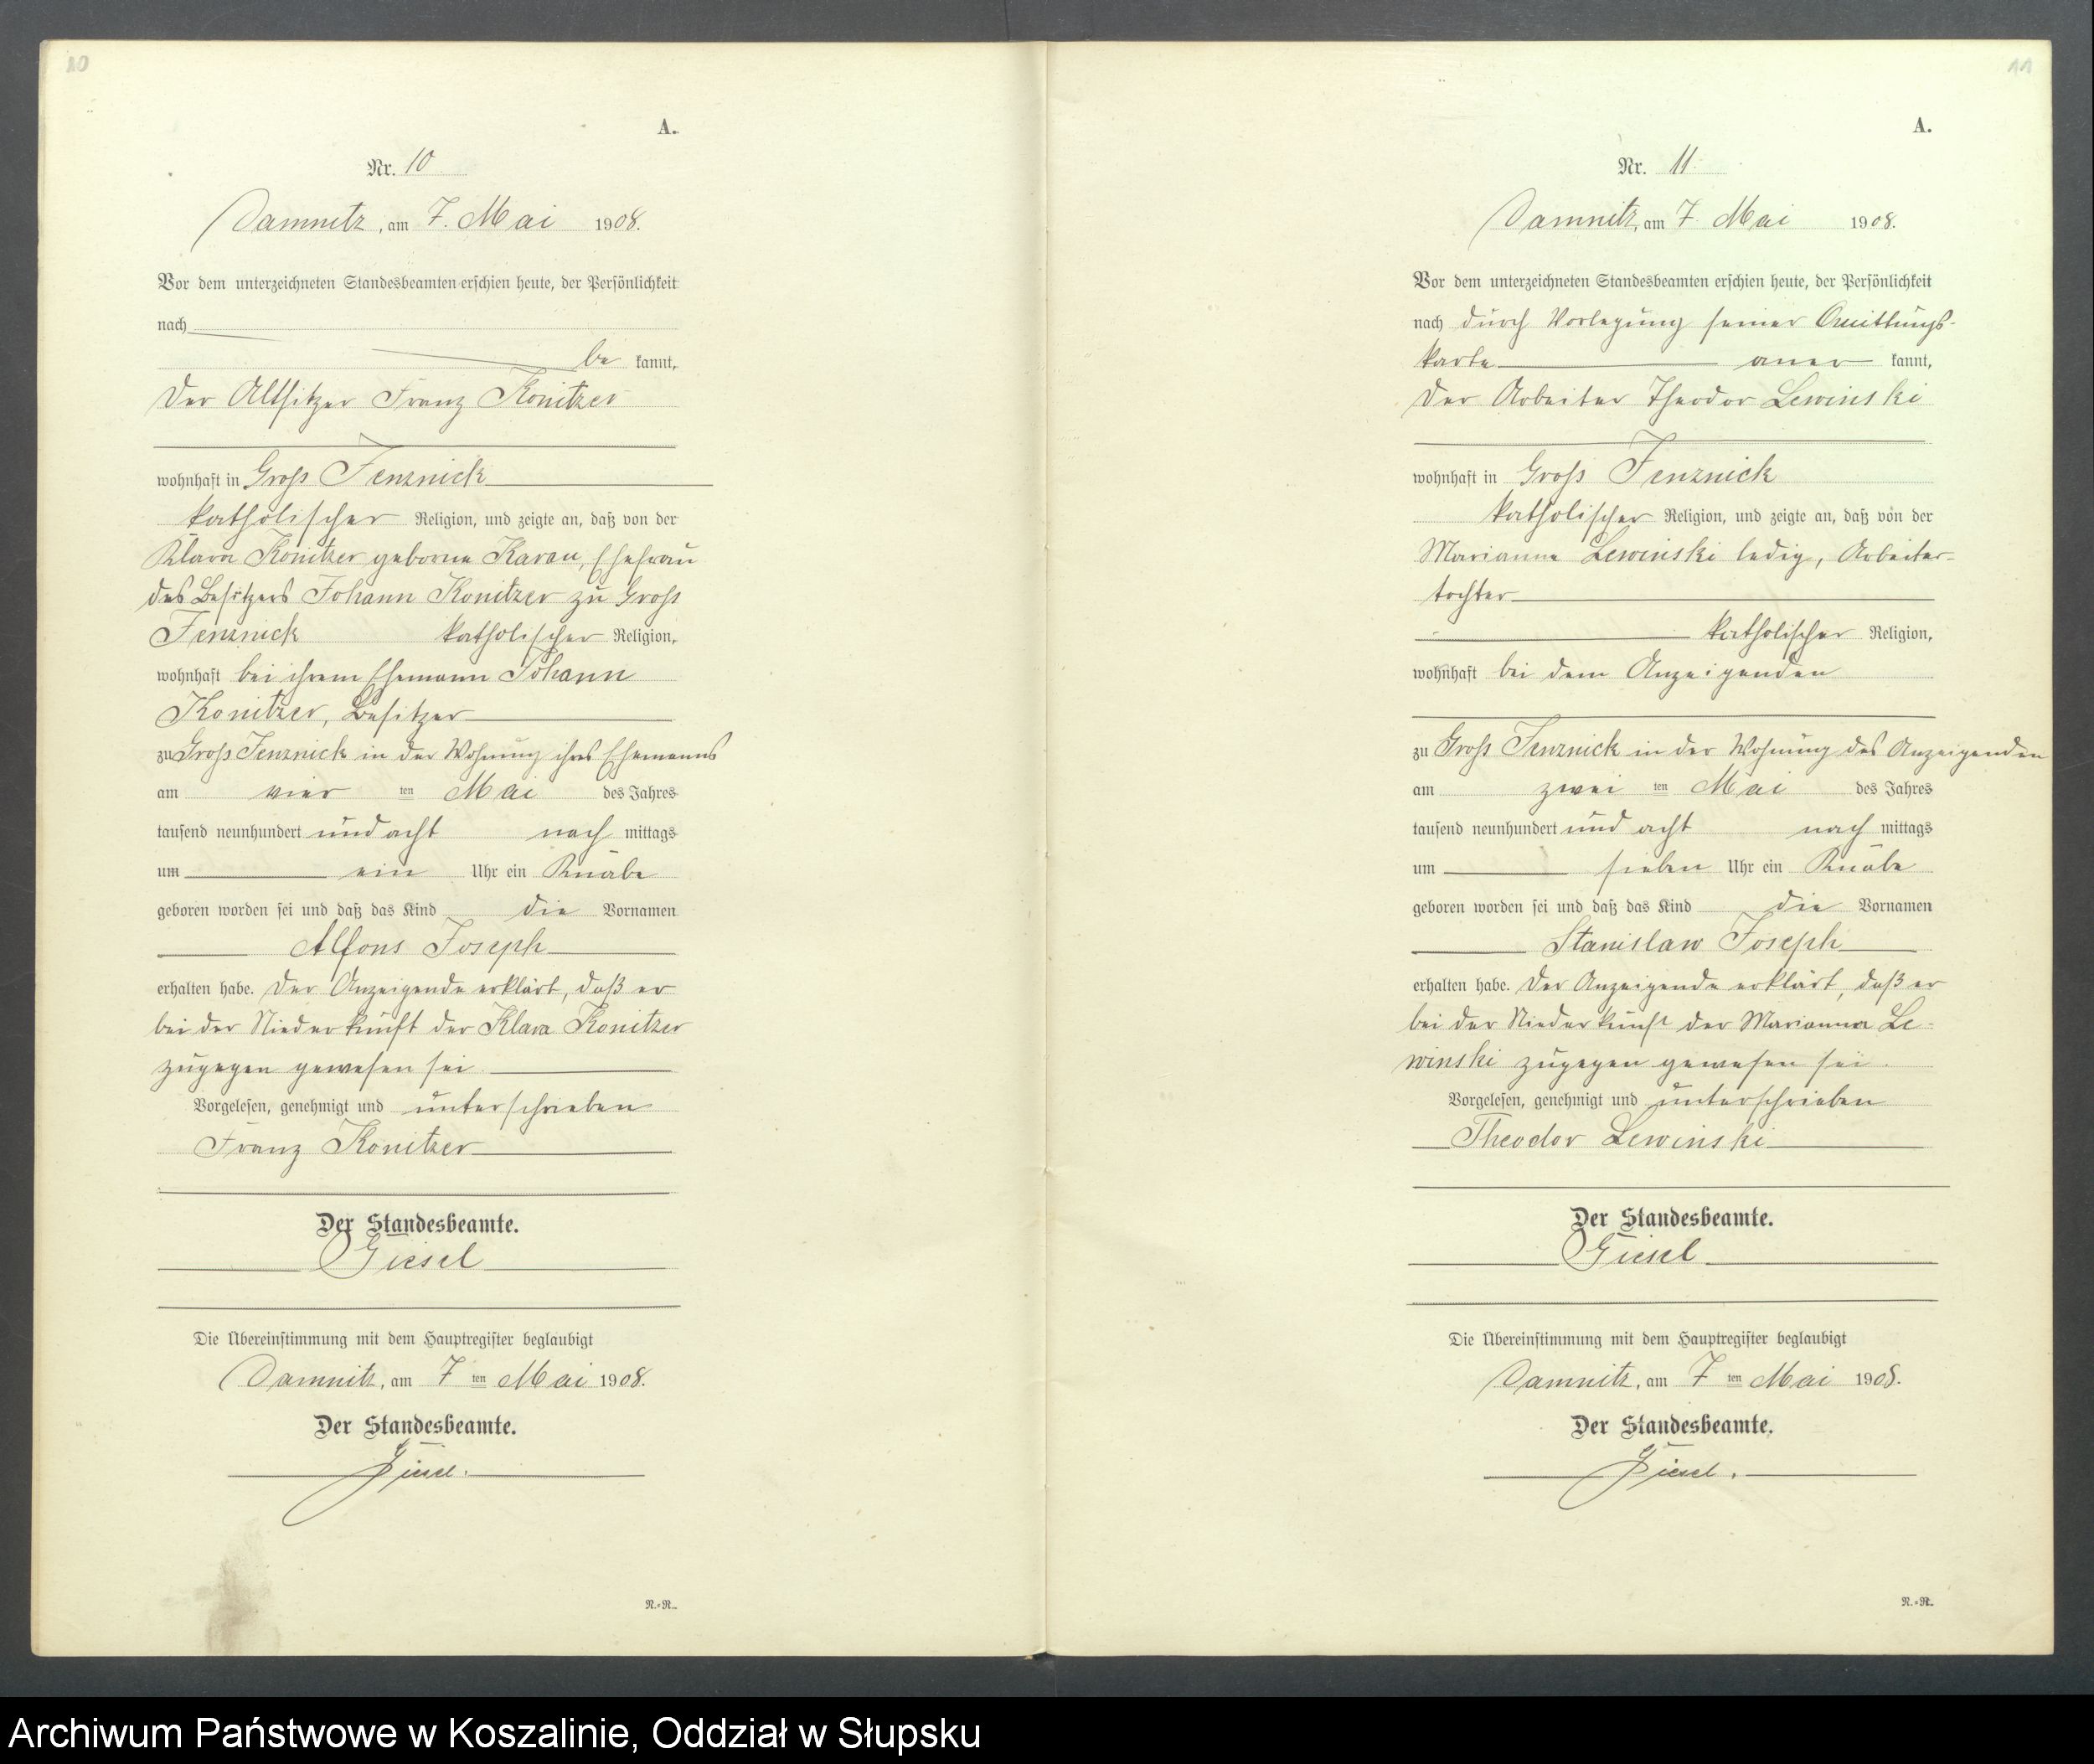 10
A.
Nr. 10
Damnitz, am 7. Mai 1908.
Vor dem unterzeichneten Standesbeamten erschien heute, der Persönlichkeit
nach
be kannt,
der Altsitzer Franz Konitzer
wohnhaft in Groß Jenznick
katholischer Religion, und zeigte an, daß von der
Klara Konitzer geborne Karau, Ehefrau
des Besitzers Johann Konitzer zu Groß
Jenznick katholischer Religion,
wohnhaft bei ihrem Ehemann Johann
Konitzer, Besitzer
zu Groß Jenznick in der Wohnung ihres Ehemanns
am vier ten Mai des Jahres
tausend neunhundert und acht nach mittags
um ein Uhr ein Knabe
geboren worden sei und daß das Kind die Vornamen
Alfons Joseph
erhalten habe. Der Anzeigende erklärt, daß er
bei der Niederkunft der Klara Konitzer
zugegen gewesen sei.
Vorgelesen, genehmigt und unterschrieben
Franz Konitzer
Der Standesbeamte.
Giesel
Die Übereinstimmung mit dem Hauptregister beglaubigt
Damnitz, am 7 ten Mai 1908.
Der Standesbeamte.
Giesel.
R.=R.
11
A.
Nr. 11
Damnitz, am 7 Mai 1908.
Vor dem unterzeichneten Standesbeamten erschien heute, der Persönlichkeit
nach durch Vorlegung seiner Quittungs-
karte aner kannt,
der Arbeiter Theodor Lewinski
wohnhaft in Groß Jenznick
katholischer Religion, und zeigte an, daß von der
Marianna Lewinski ledig, Arbeiter-
tochter
katholischer Religion,
wohnhaft bei dem Anzeigenden
zu Groß Jenznick in der Wohnung des Anzeigenden
am zwei ten Mai des Jahres
tausend neunhundert und acht nach mittags
um sieben Uhr ein Knabe
geboren worden sei und daß das Kind die Vornamen
Stanislaw Joseph
erhalten habe. Der Anzeigende erklärt, daß er
bei der Niederkunft der Marianna Le-
winski zugegen gewesen sei.
Vorgelesen, genehmigt und unterschrieben
Theodor Lewinski
Der Standesbeamte.
Giesel
Die Übereinstimmung mit dem Hauptregister beglaubigt
Damnitz, am 7 ten Mai 1908.
Der Standesbeamte.
Giesel.
R.=R.
Archiwum Państwowe w Koszalinie, Oddział w Słupsku